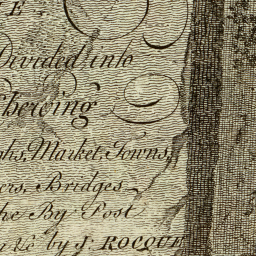 E
Divided into
Shewing
Market Towns,
Bridges
the By Post
by J: ROCQUE